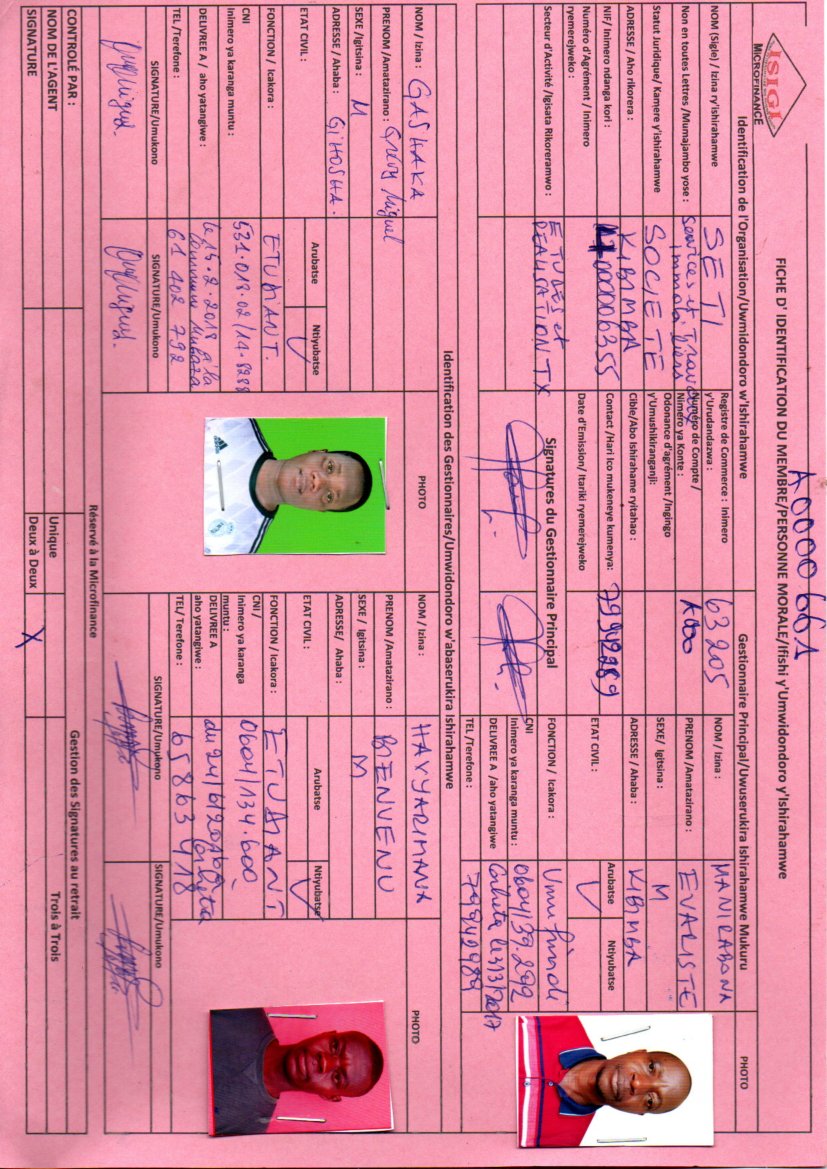 ISIGI
MICROFINANCE
A0000 661
FICHE D' IDENTIFICATION DU MEMBRE/PERSONNE MORALE/Ifishi y'Umwidondoro y'Ishirahamwe
Identification de l'Organisation/Uwmidondoro w'Ishirahamwe
Gestionnaire Principal/Uwuserukira Ishirahamwe Mukuru
PHOTO
NOM (Sigle) / Izina ry'ishirahamwe
SETI
Registre de Commerce : Inimero y'Urudandazwa :
63205
NOM / Izina :
MANIRABONA
Non en toutes Lettres /Mumajambo yose :
Services et Travaux Immobiliers
Numéro de Compte / Nimero ya Konte :
PRENOM /Amatazirano :
EVARISTE
Statut Juridique/ Kamere y'ishirahamwe
SOCIETE
Odonance d'agrément /Ingingo y'Umushikiranganji:
SEXE/ Igitsina :
M
ADRESSE / Aho rikorera :
KIBIMBA
Cible/Abo Ishirahame ryitaho :
ADRESSE / Ahaba :
KIBIMBA
NIF/ Inimero ndanga kori :
Contact /Hari ico mukeneye kumenya:
79942989
ETAT CIVIL :
Arubatse
Ntiyubatse
Numéro d'Agrément / Inimero ryemerejweko :
Date d'Emission/ Itariki ryemerejweko
Secteur d'Activité /Igisata Rikoreramwo :
ETUDES et REALISATION TX
Signatures du Gestionnaire Principal
FONCTION / Icakora :
Umufundi
CNI
Inimero ya karanga muntu :
0604/39.292
DELIVREE A /aho yatangiwe
TEL /Terefone :
79942989
Identification des Gestionnaires/Umwidondoro w'abaserukira Ishirahamwe
NOM / Izina :
GASHAKA
PHOTO
NOM / Izina :
HAVYARIMANA
PHOTO
PRENOM /Amatazirano :
Miguel
PRENOM /Amatazirano :
BIENVENU
SEXE /Igitsina :
M
SEXE / Igitsina :
M
ADRESSE / Ahaba :
GIHOSHA.
ADRESSE/ Ahaba :
ETAT CIVIL :
Arubatse
Ntiyubatse
ETAT CIVIL :
Arubatse
Ntiyubatse
FONCTION / Icakora :
ETUDIANT.
FONCTION / Icakora :
ETUDIANT
CNI
Inimero ya karanga muntu :
531.013.02/14.8288
CNI /
Inimero ya karanga muntu :
0604/134.600
DELIVREE A / aho yatangiwe :
le 15.2.2018 à la Commune Mubaza
DELIVREE A
aho yatangiwe :
TEL /Terefone :
61 402 792
TEL/ Terefone :
65863418
SIGNATURE/Umukono
SIGNATURE/Umukono
SIGNATURE/Umukono
SIGNATURE/Umukono
Réservé à la Microfinance
CONTROLÉ PAR :
Gestion des Signatures au retrait
NOM DE L'AGENT
Unique
Trois à Trois
SIGNATURE
Deux à Deux
X